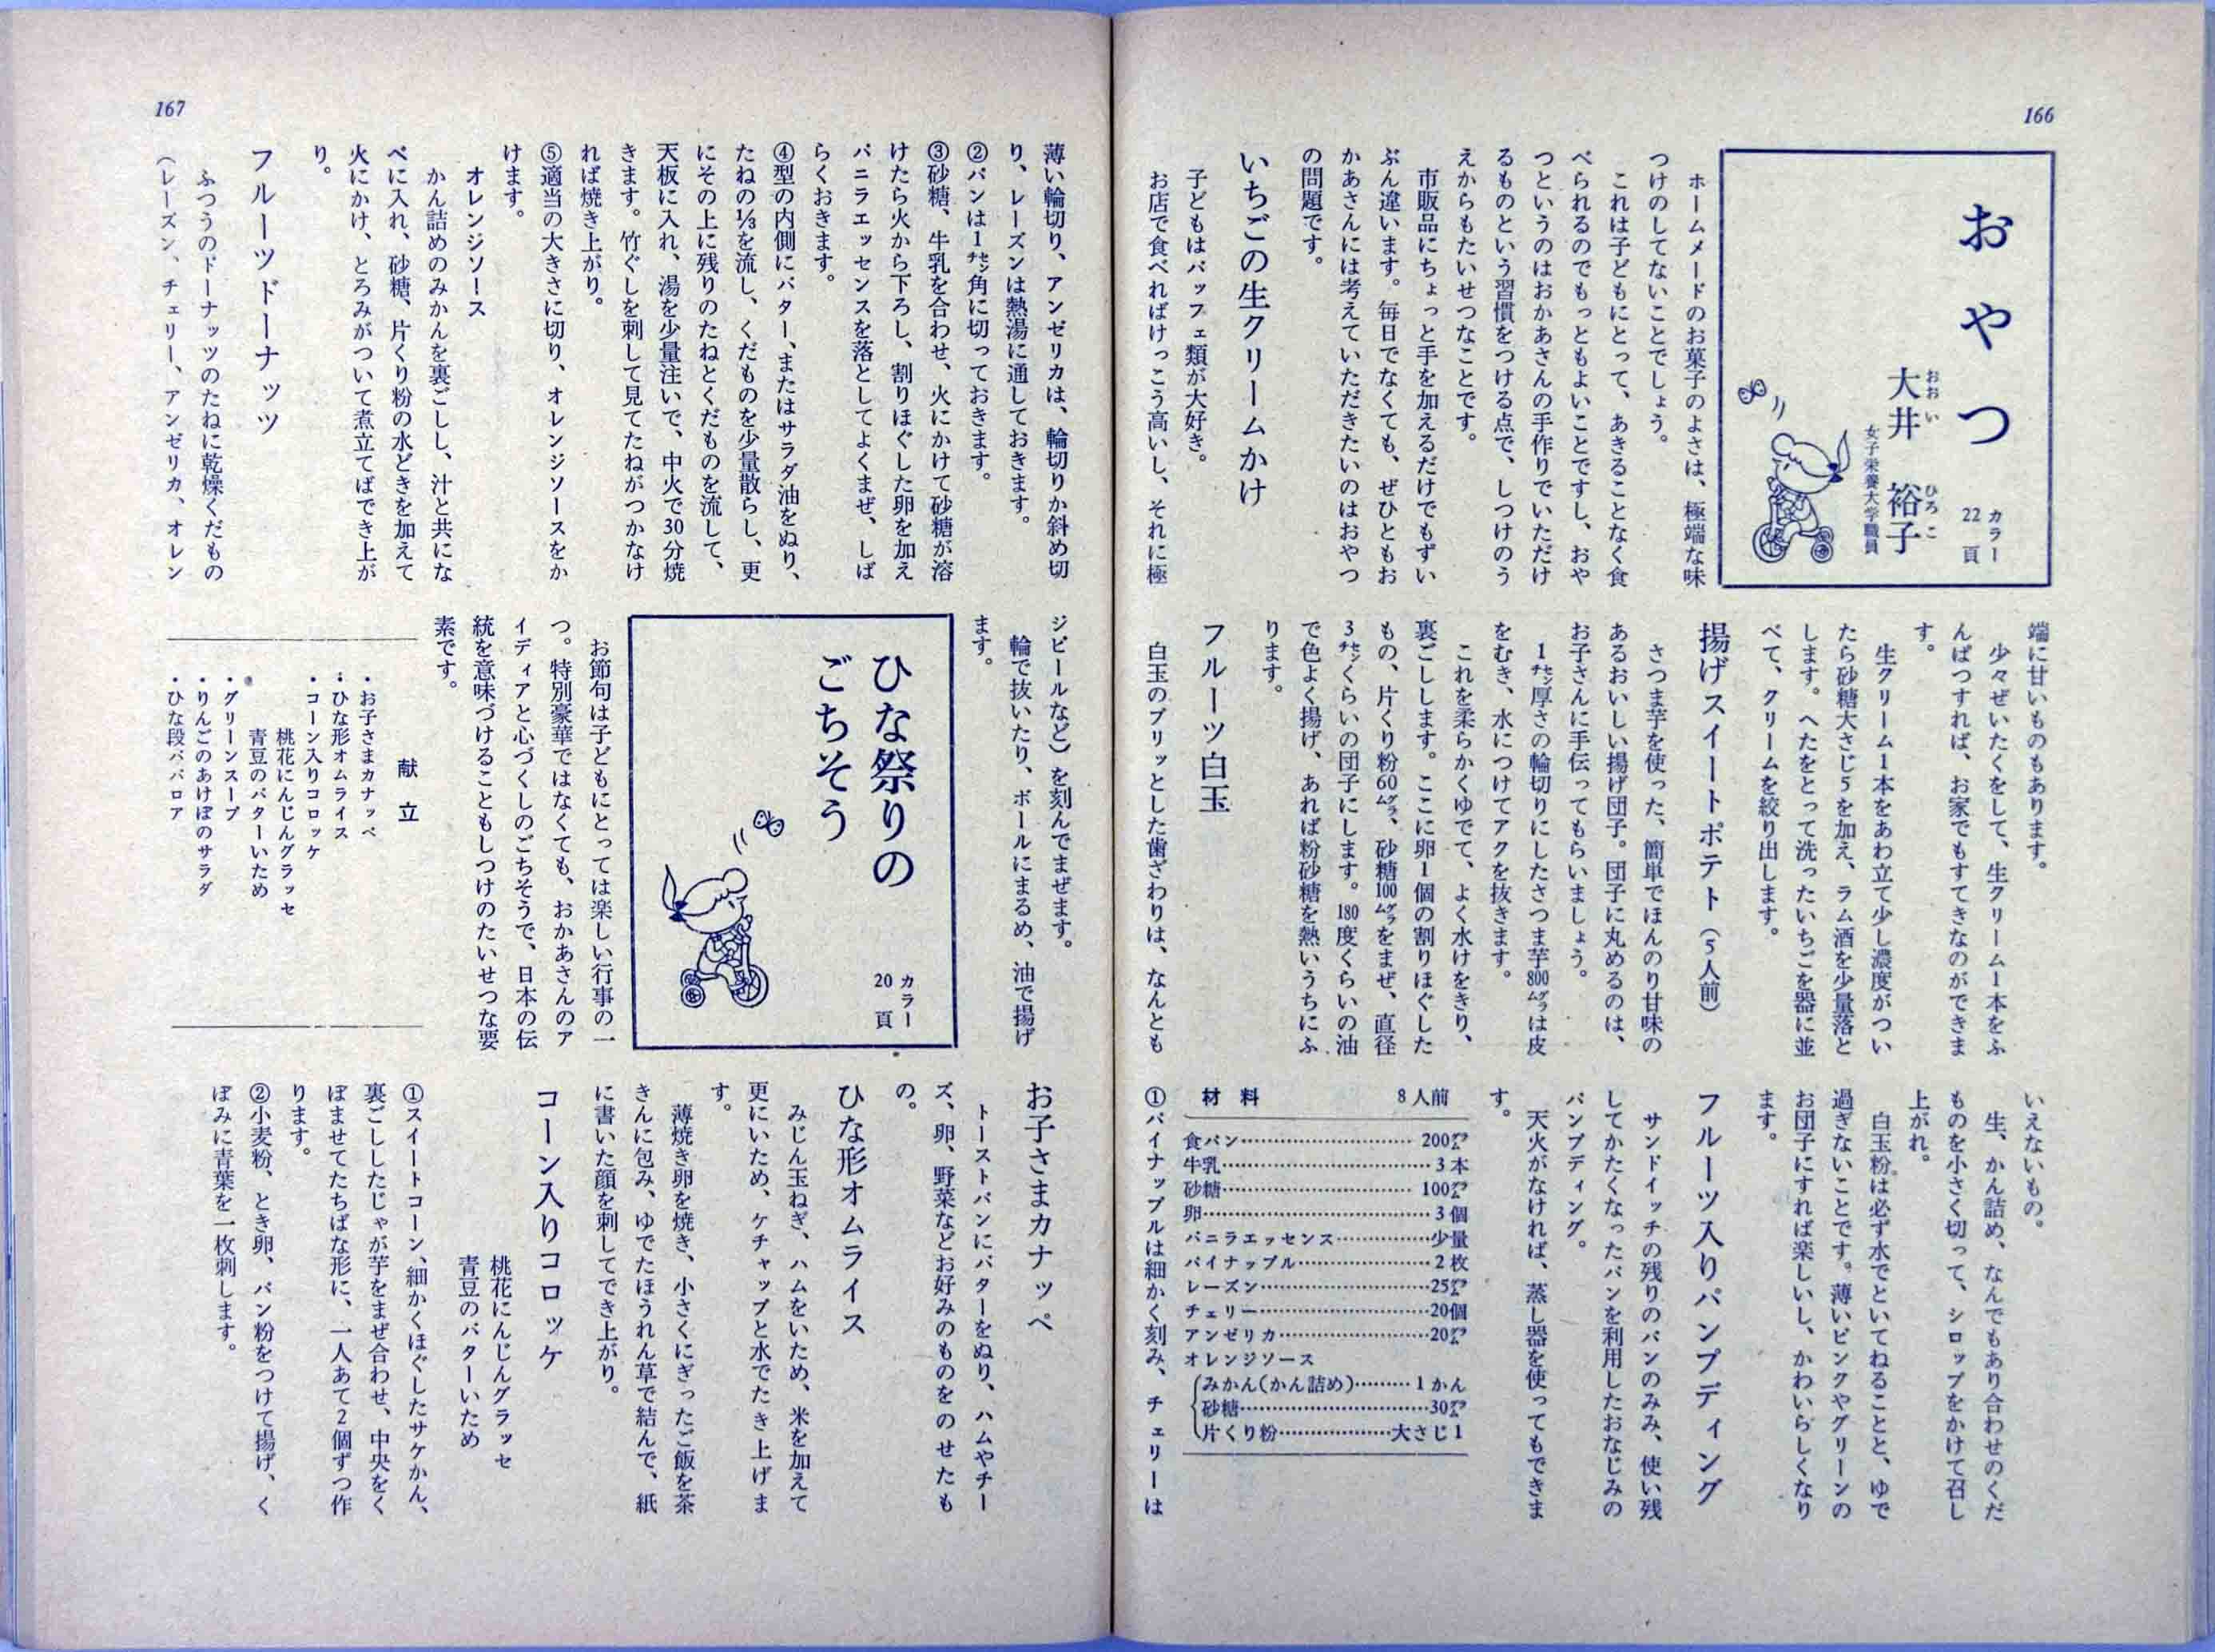 166
おやつ
カラー
22頁
大井裕子
おおいひろこ
女子栄養大学職員
ホームメードのお菓子のよさは、極端な味
つけのしてないことでしょう。
これは子どもにとって、あきることなく食
べられるのでもっともよいことですし、おや
つというのはおかあさんの手作りでいただけ
るものという習慣をつける点で、しつけのう
えからもたいせつなことです。
市販品にちょっと手を加えるだけでもずい
ぶん違います。毎日でなくても、ぜひともお
かあさんには考えていただきたいのはおやつ
の問題です。
いちごの生クリームかけ
子どもはパッフェ類が大好き。
お店で食べればけっこう高いし、それに極
端に甘いものもあります。
少々ぜいたくをして、生クリーム1本をふ
んぱつすれば、お家でもすてきなのができま
す。
生クリーム1本をあわ立て少し濃度がつい
たら砂糖大さじ5を加え、ラム酒を少量落と
します。へたをとって洗ったいちごを器に並
べて、クリームを絞り出します。
揚げスイートポテト(5人前)
さつま芋を使った、簡単でほんのり甘味の
あるおいしい揚げ団子。団子に丸めるのは、
お子さんに手伝ってもらいましょう。
1センチ厚さの輪切りにしたさつま芋800グラムは皮
をむき、水につけてアクを抜きます。
これを柔らかくゆでて、よく水けをきり、
裏ごしします。ここに卵1個の割りほぐした
もの、片くり粉60グラム、砂糖100グラムをまぜ、直径
3センチくらいの団子にします。180度くらいの油
で色よく揚げ、あれば粉砂糖を熱いうちにふ
ります。
フルーツ白玉
白玉のプリッとした歯ざわりは、なんとも
いえないもの。
生、かん詰め、なんでもあり合わせのくだ
ものを小さく切って、シロップをかけて召し
上がれ。
白玉粉は必ず水でといてねることと、ゆで
過ぎないことです。薄いピンクやグリーンの
お団子にすれば楽しいし、かわいらしくなり
ます。
フルーツ入りパンプディング
サンドイッチの残りのパンのみみ、使い残
してかたくなったパンを利用したおなじみの
パンプディング。
天火がなければ、蒸し器を使ってもできま
す。
材料 8人前
食パン…………200グラム
牛乳…………3本
砂糖…………100グラム
卵…………3個
バニラエッセンス…………少量
パイナップル…………2枚
レーズン…………25グラム
チェリー…………20個
アンゼリカ…………20グラム
オレンジソース
みかん(かん詰め)………1かん
砂糖…………30グラム
片くり粉…………大さじ1
①パイナップルは細かく刻み、チェリーは
167
薄い輪切り、アンゼリカは、輪切りか斜め切
り、レーズンは熱湯に通しておきます。
②パンは1センチ角に切っておきます。
③砂糖、牛乳を合わせ、火にかけて砂糖が溶
けたら火から下ろし、割りほぐした卵を加え
バニラエッセンスを落としてよくまぜ、しば
らくおきます。
④型の内側にバター、またはサラダ油をぬり、
たねの⅓を流し、くだものを少量散らし、更
にその上に残りのたねとくだものを流して、
天板に入れ、湯を少量注いで、中火で30分焼
きます。竹ぐしを刺して見てたねがつかなけ
れば焼き上がり。
⑤適当の大きさに切り、オレンジソースをか
けます。
オレンジソース
かん詰めのみかんを裏ごしし、汁と共にな
べに入れ、砂糖、片くり粉の水どきを加えて
火にかけ、とろみがついて煮立てばでき上が
り。
フルーツドーナッツ
ふつうのドーナッツのたねに乾燥くだもの
(レーズン、チェリー、アンゼリカ、オレン
ジピールなど)を刻んでまぜます。
輪で抜いたり、ボールにまるめ、油で揚げ
ます。
ひな祭りの
ごちそう
カラー
20頁
お節句は子どもにとっては楽しい行事の一
つ。特別豪華ではなくても、おかあさんのア
イディアと心づくしのごちそうで、日本の伝
統を意味づけることもしつけのたいせつな要
素です。
献立
・お子さまカナッペ
・ひな形オムライス
・コーン入りコロッケ
桃花にんじんグラッセ
青豆のバターいため
・グリーンスープ
・りんごのあけぼのサラダ
・ひな段ババロア
お子さまカナッペ
トーストパンにバターをぬり、ハムやチー
ズ、卵、野菜などお好みのものをのせたも
の。
ひな形オムライス
みじん玉ねぎ、ハムをいため、米を加えて
更にいため、ケチャップと水でたき上げま
す。
薄焼き卵を焼き、小さくにぎったご飯を茶
きんに包み、ゆでたほうれん草で結んで、紙
に書いた顔を刺してでき上がり。
コーン入りコロッケ
桃花にんじんグラッセ
青豆のバターいため
①スイートコーン、細かくほぐしたサケかん、
裏ごししたじゃが芋をまぜ合わせ、中央をく
ぼませてたちばな形に、一人あて2個ずつ作
ります。
②小麦粉、とき卵、パン粉をつけて揚げ、く
ぼみに青葉を一枚刺します。